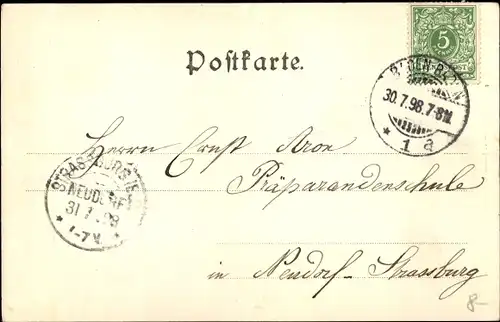 Postkarte.
5
BADEN-BADEN
30.7.98.7-8N.
* 1 a
Herrn Ernst Aron
Präparandenschule
in Neudorf-Strassburg
STRASSBURG
NEUDORF
31 7 98
* 6-7V. *
8-